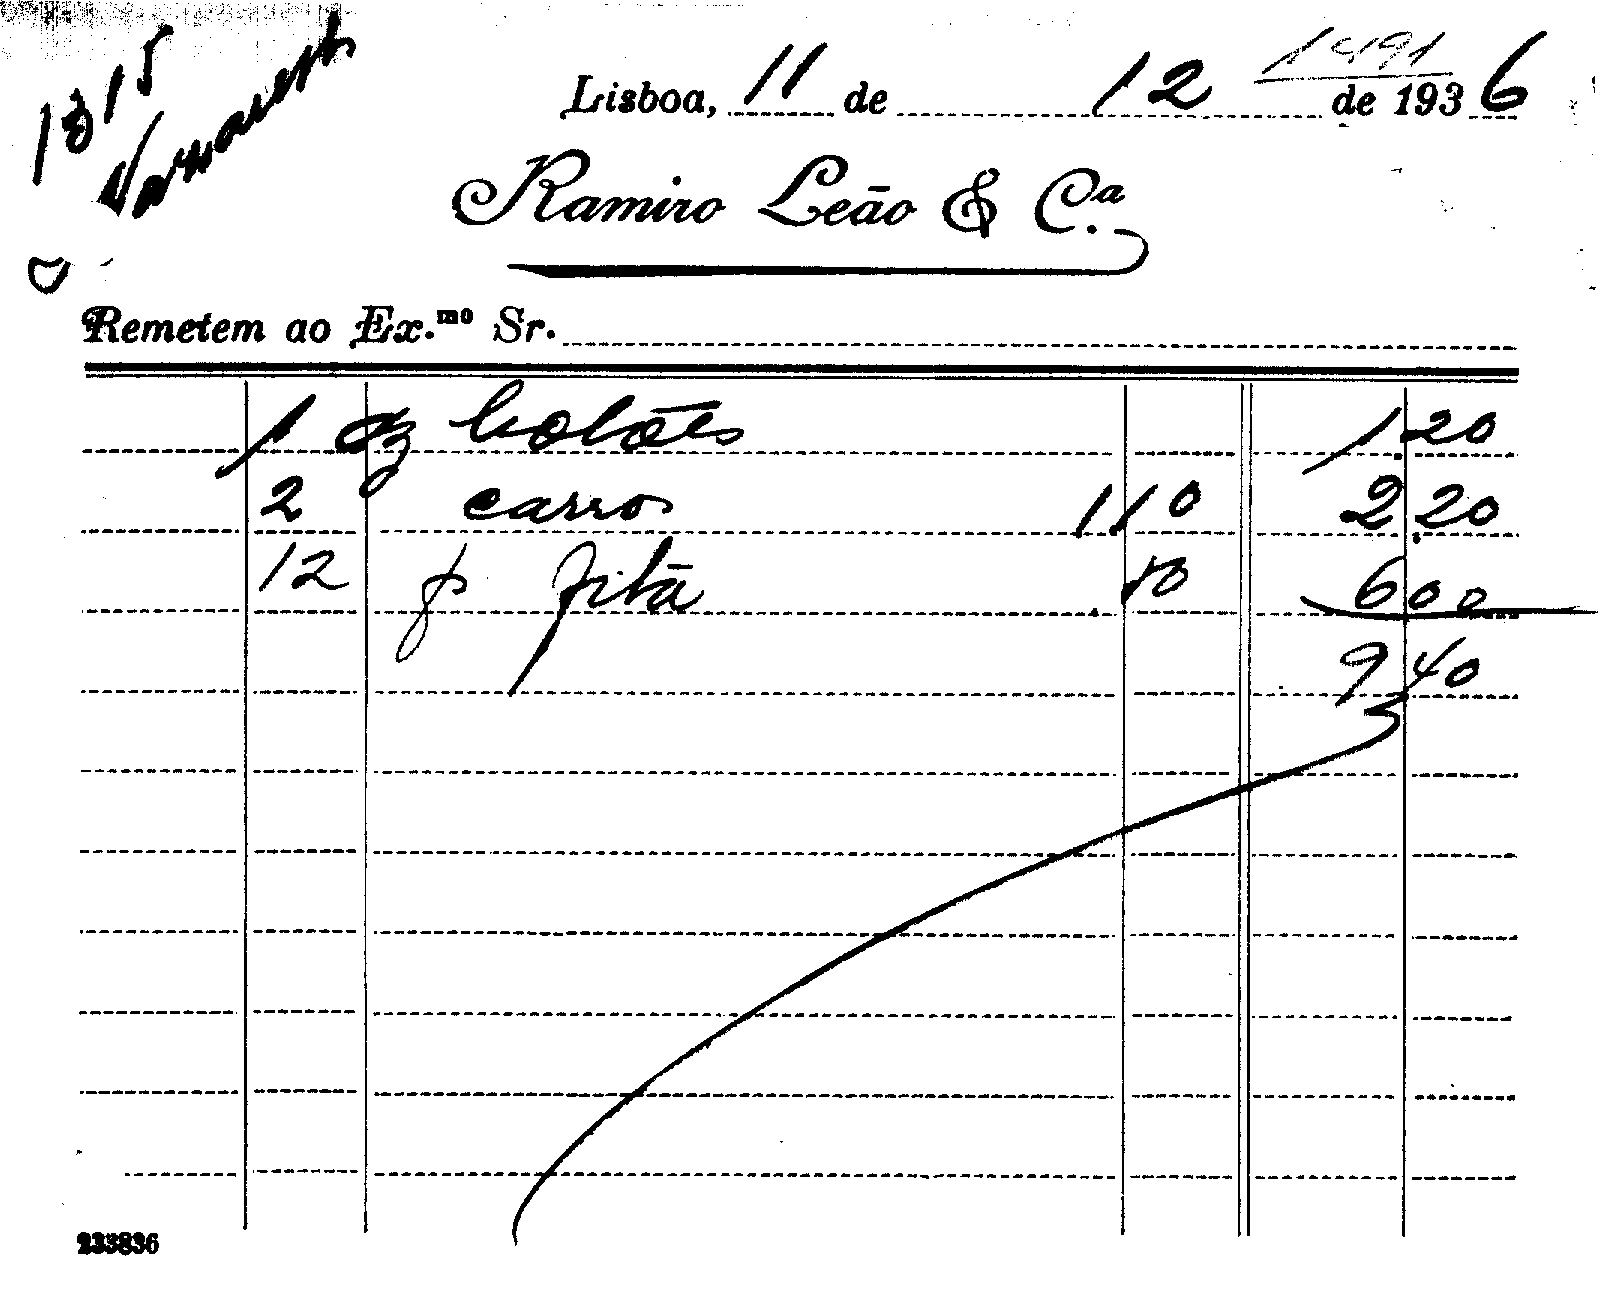 1491
1315
Lisboa, 11 de 12 de 1936
Ramiro Leão & Cª.
Remetem ao Ex.mo Sr.
1 dz botões 1.20
2 carros 1.10 2.20
12 p fita 10 6.00
9.40
233836